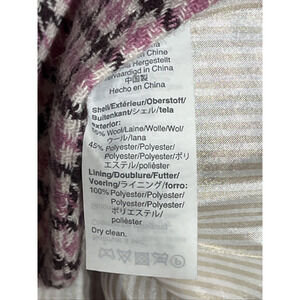 in China
en Chine
Hergestellt
vervaardigd in China
中国製
Hecho en China
Shell/Extérieur/Oberstoff/
Buitenkant/シェル/tela
exterior:
55% Wool/Laine/Wolle/Wol/
ウール/lana
45% Polyester/Polyester/
Polyester/Polyester/ポリ
エステル/poliéster
Lining/Doublure/Futter/
Voering/ライニング/forro:
100% Polyester/Polyester/
Polyester/Polyester/
ポリエステル/
poliéster
Dry clean.